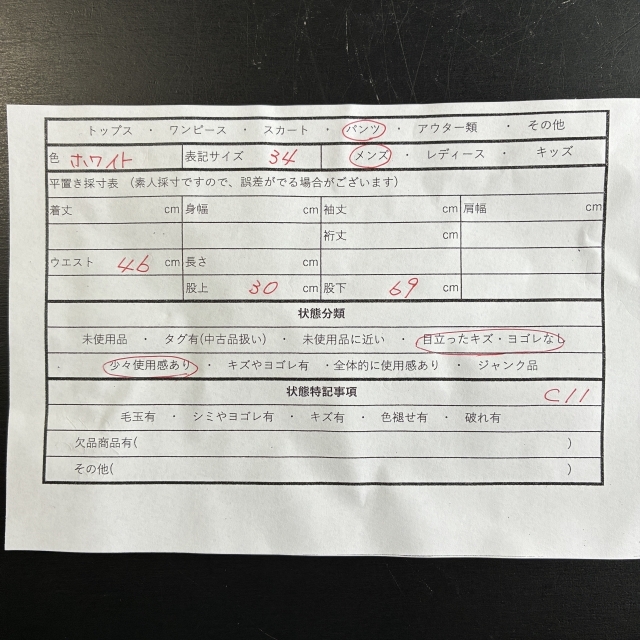 トップス ・ ワンピース ・ スカート ・ パンツ ・ アウター類 ・ その他
色 ホワイト 表記サイズ 34 メンズ ・ レディース ・ キッズ
平置き採寸表 （素人採寸ですので、誤差がでる場合がございます）
着丈 cm 身幅 cm 袖丈 cm 肩幅 cm
裄丈 cm
ウエスト 46 cm 長さ cm
股上 30 cm 股下 69 cm
状態分類
未使用品 ・ タグ有(中古品扱い) ・ 未使用品に近い ・ 目立ったキズ・ヨゴレなし
・ 少々使用感あり ・ キズやヨゴレ有 ・全体的に使用感あり ・ ジャンク品
状態特記事項 C11
毛玉有 ・ シミやヨゴレ有 ・ キズ有 ・ 色褪せ有 ・ 破れ有
欠品商品有( )
その他( )